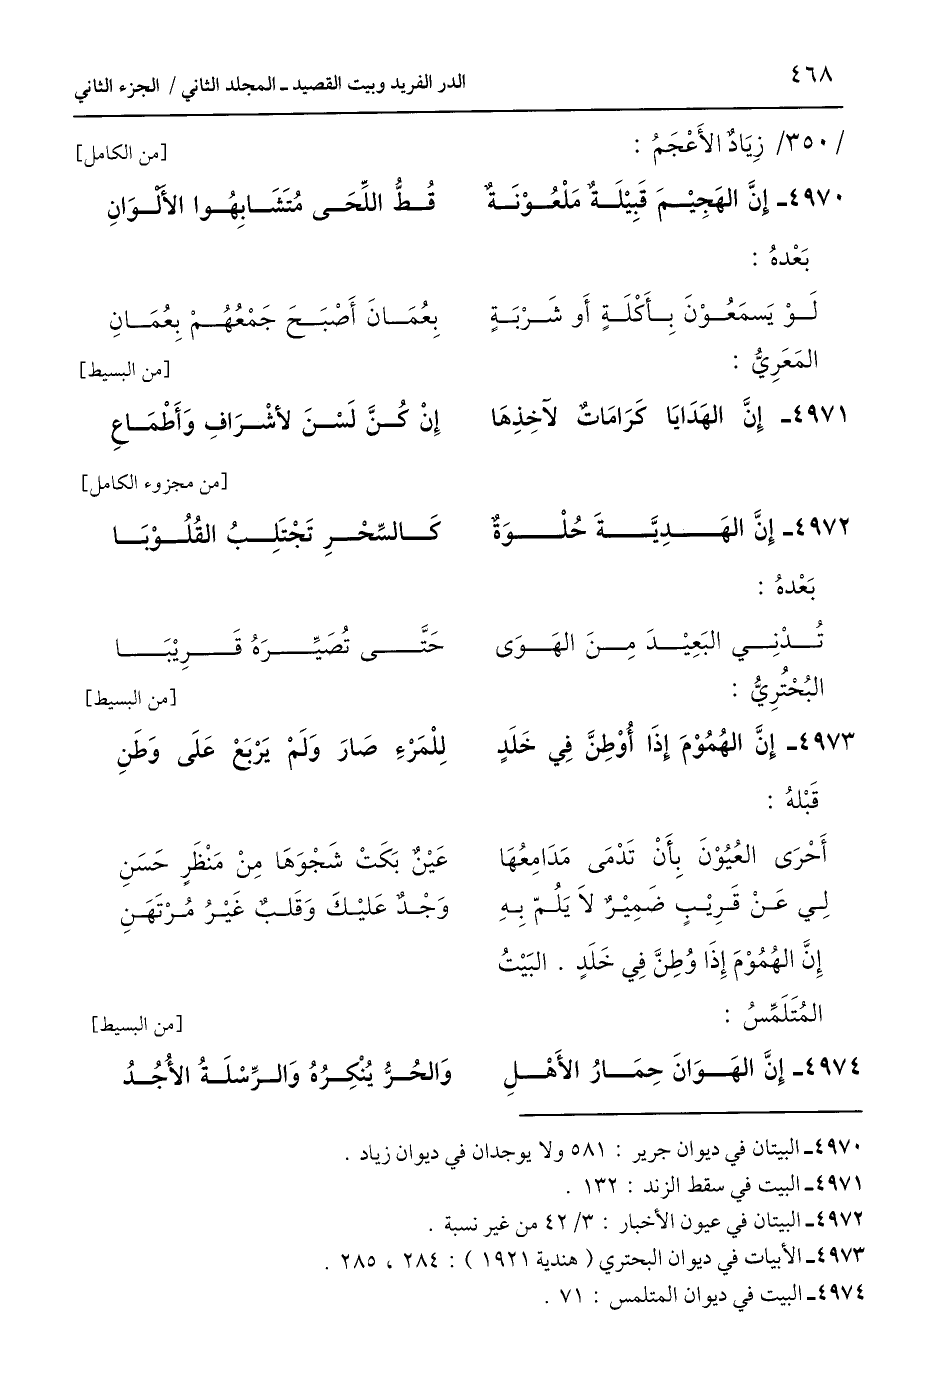 ٤٦٨ الدر الفريد وبيت القصيد ـ المجلد الثاني / الجزء الثاني
/ ٣٥٠/ زِيَادٌ الأَعْجَمُ : [من الكامل]
٤٩٧٠ـ إِنَّ الهَجِيْمَ قَبِيْلَةٌ مَلْعُوْنَةٌ قُطُّ اللِّحَى مُتَشَابِهُوا الأَلْوَانِ
بَعْدهُ :
لَوْ يَسمَعُوْنَ بِأَكْلَةٍ أَو شَرْبَةٍ بِعُمَانَ أَصْبَحَ جَمْعُهُمْ بِعُمَانِ
المَعَرِيُّ : [من البسيط]
٤٩٧١ـ إِنَّ الهَدَايَا كَرَامَاتٌ لآخِذِهَا إِنْ كُنَّ لَسْنَ لأشْرَافٍ وَأَطْمَاعِ
[من مجزوء الكامل]
٤٩٧٢ـ إِنَّ الهَدِيَّةَ حُلْوَةٌ كَالسِّحْرِ تَجْتَلِبُ القُلُوْبَا
بَعْدهُ :
تُدْنِي البَعِيْدَ مِنَ الهَوَى حَتَّى تُصَيِّرَهُ قَرِيْبَا
البُحْتُرِيُّ : [من البسيط]
٤٩٧٣ـ إِنَّ الهُمُوْمَ إِذَا أُوْطِنَّ فِي خَلَدٍ لِلْمَرْءِ صَارَ وَلَمْ يَرْبَعْ عَلَى وَطَنِ
قَبْلهُ :
أَحْرَى العُيُوْنَ بِأَنْ تَدْمَى مَدَامِعُهَا عَيْنٌ بَكَتْ شَجْوَهَا مِنْ مَنْظَرٍ حَسَنِ
لِي عَنْ قَرِيْبٍ ضَمِيْرٌ لاَ يَلُمّ بِهِ وَجْدٌ عَلَيْكَ وَقَلبٌ غَيْرُ مُرْتَهَنِ
إِنَّ الهُمُوْمَ إِذَا وُطِنَّ فِي خَلَدٍ . البَيْتُ
المُتَلَمِّسُ : [من البسيط]
٤٩٧٤ـ إِنَّ الهَوَانَ حِمَارُ الأَهْلِ وَالحُرُّ يُنْكِرُهُ وَالرِّسْلَةُ الأُجُدُ
٤٩٧٠ـ البيتان في ديوان جرير : ٥٨١ ولا يوجدان في ديوان زياد .
٤٩٧١ـ البيت في سقط الزند : ١٣٢ .
٤٩٧٢ـ البيتان في عيون الأخبار : ٣/ ٤٢ من غير نسبة .
٤٩٧٣ـ الأبيات في ديوان البحتري ( هندية ١٩٢١ ) : ٢٨٤ ، ٢٨٥ .
٤٩٧٤ـ البيت في ديوان المتلمس : ٧١ .